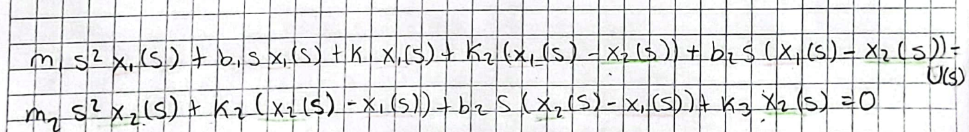 m₁ s² x₁(s) + b₁ s x₁(s) + K₁ x₁(s) + K₂ (x₁(s) - x₂(s)) + b₂ s (x₁(s) - x₂(s)) =
U(s)
m₂ s² x₂(s) + K₂ (x₂(s) - x₁(s)) + b₂ s (x₂(s) - x₁(s)) + K₃ x₂(s) = 0